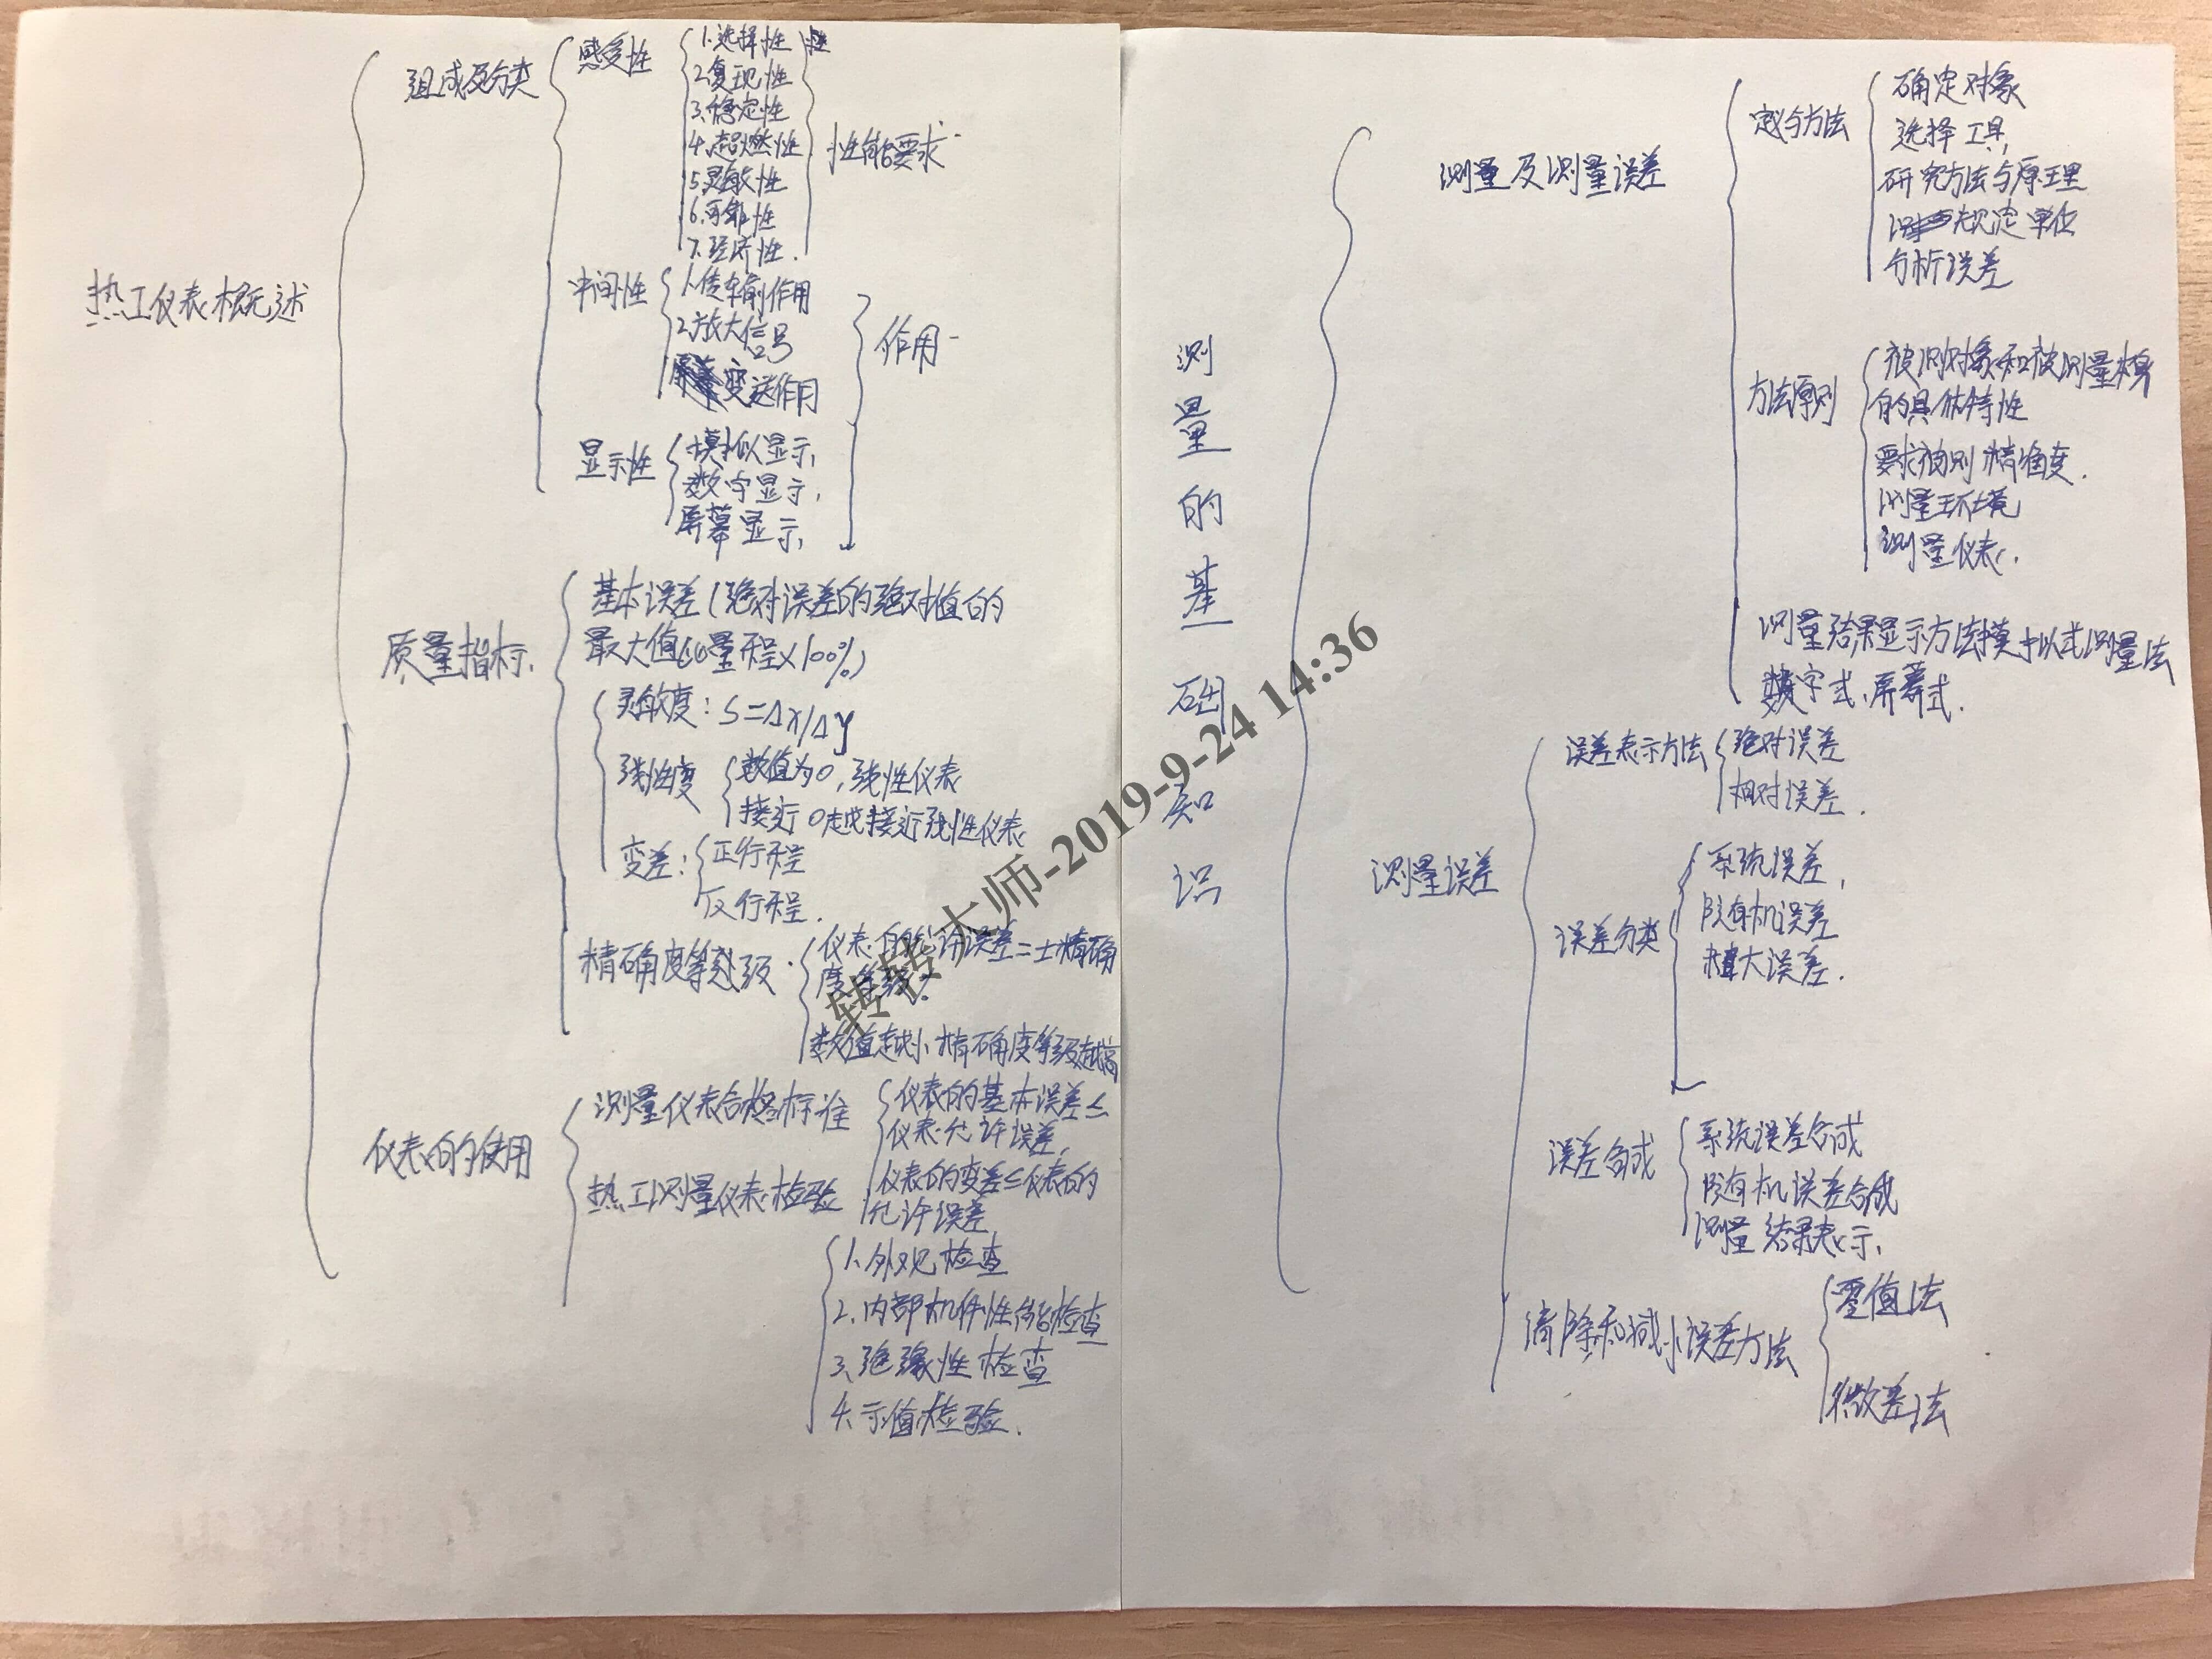 热工仪表概述
组成及分类
感受性
1.选择性
2.复现性
3.稳定性
4.超燃性
5.灵敏性
6.可靠性
7.经济性.
性能要求
中间性
1.传输作用
2.放大信号
变送作用
作用
显示性
模拟显示,
数字显示,
屏幕显示,
质量指标
基本误差(绝对误差的绝对值的
最大值比量程×100%)
灵敏度: S=Δx/Δy
线性度
数值为0,线性仪表
接近0越接近线性仪表
变差:
正行程
反行程.
精确度等级
仪表的允许误差=±精确
度等级
数值越小精确度等级越高
仪表的使用
测量仪表合格标准
仪表的基本误差≤
仪表允许误差,
仪表的变差≤仪表的
允许误差
热工测量仪表检验
1.外观检查
2.内部机件性能检查
3.绝缘性检查
4.示值检验.
测量的基础知识
测量及测量误差
定义与方法
确定对象
选择工具,
研究方法与原理
规定单位
分析误差
方法原则
被测对象和被测量本身
的具体特性
要求测精确度.
测量环境
测量仪表.
测量结果显示方法模拟式测量法
数字式、屏幕式.
测量误差
误差表示方法
绝对误差
相对误差.
误差分类
系统误差,
随机误差
粗大误差.
误差合成
系统误差合成
随机误差合成
测量结果表示,
消除和减小误差方法
零值法
微差法
转转大师-2019-9-24 14:36